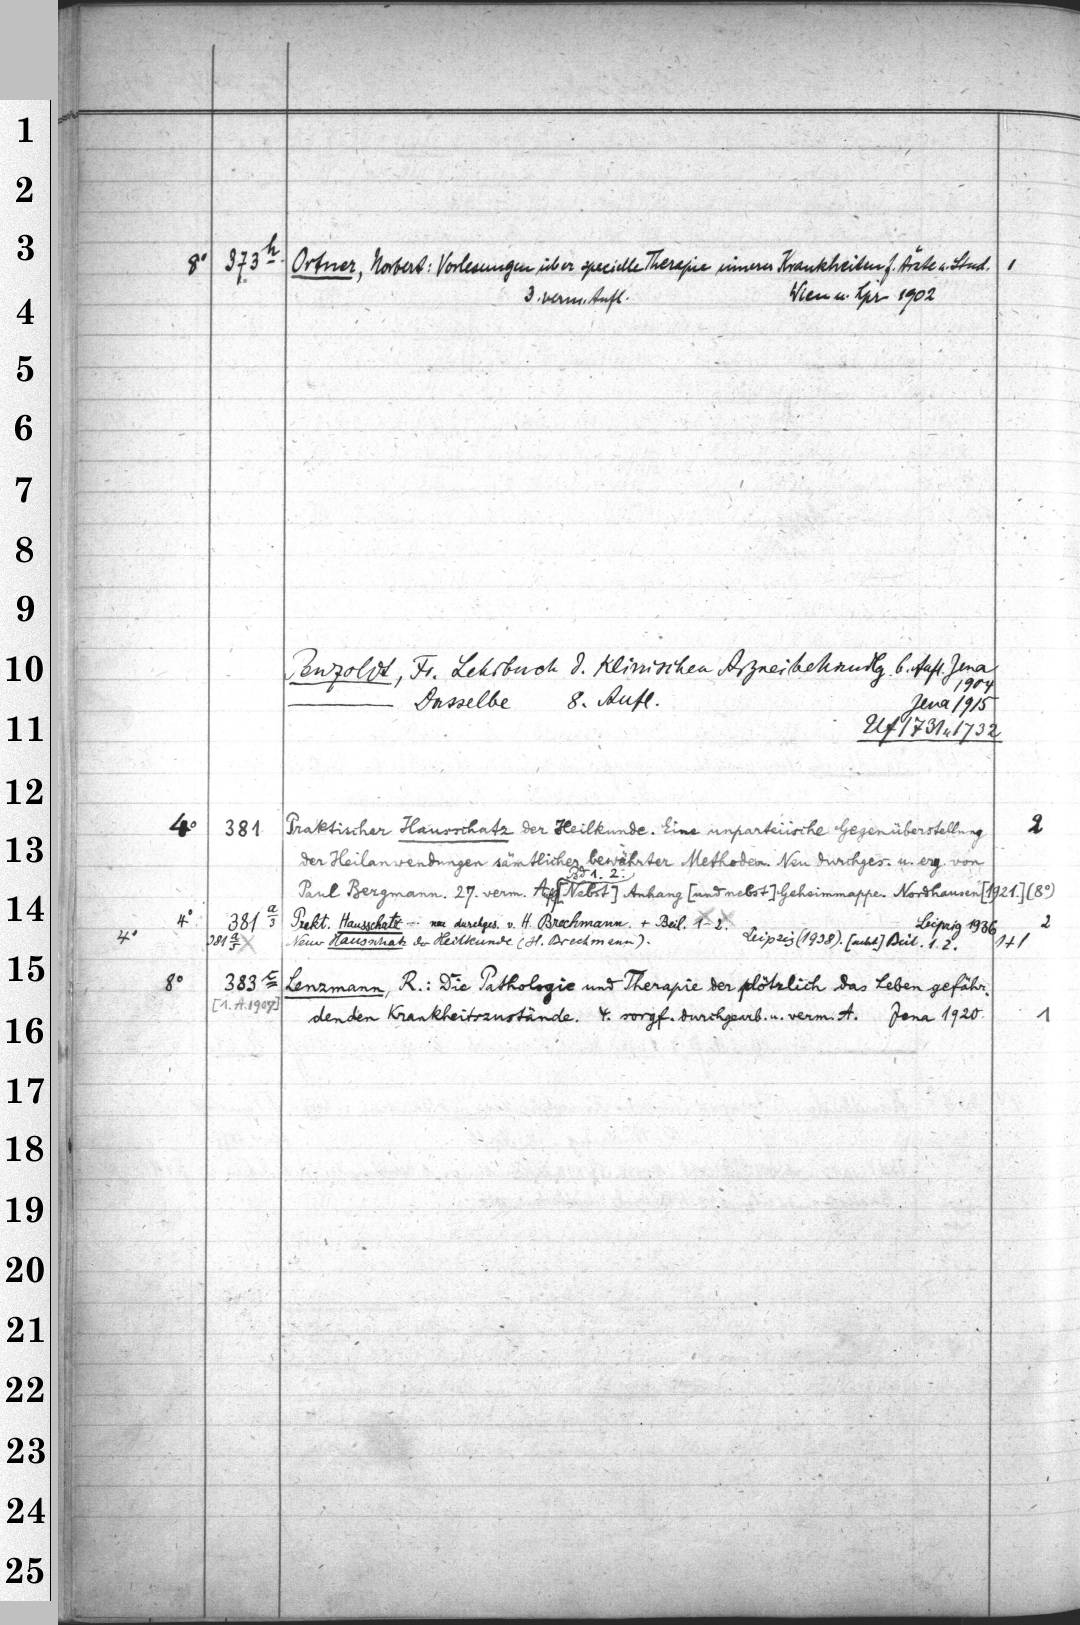 1
2
3
8° 373 h Ortner, Norbert: Vorlesungen über specielle Therapie innerer Krankheiten f. Ärzte u. Stud. 1
3. verm. Aufl. Wien u. Lpz 1902
4
5
6
7
8
9
10
Penzoldt, Fr. Lehrbuch d. klinischen Arzneibehandlg. 6. Aufl. Jena 1904
Dasselbe 8. Aufl. Jena 1915
11
Uf 1731 u. 1732
12
4° 381 Praktischer Hausschatz der Heilkunde. Eine unparteiische Gegenüberstellung 2
13
der Heilanwendungen sämtlicher bewährter Methoden. Neu durchges. u. erg. von
Bd 1. 2.
Paul Bergmann. 27. verm. [Nebst] Anhang [und nebst] Geheimmappe. Nordhausen [1921.] (8°)
14
4° 381 a/3 Prakt. Hausschatz — neu durchges. v. H. Brechmann. + Beil. 1-2. Leipzig 1936 2
4° 381 Neuer Hausschatz der Heilkunde (H. Brechmann). Leipzig (1938). [nebst] Beil. 1. 2. 1+1
15
8° 383 c Lenzmann, R.: Die Pathologie und Therapie der plötzlich das Leben gefähr-
[1. A. 1907]
denden Krankheitszustände. 4. sorgf. durchgearb. u. verm. A. Jena 1920. 1
16
17
18
19
20
21
22
23
24
25